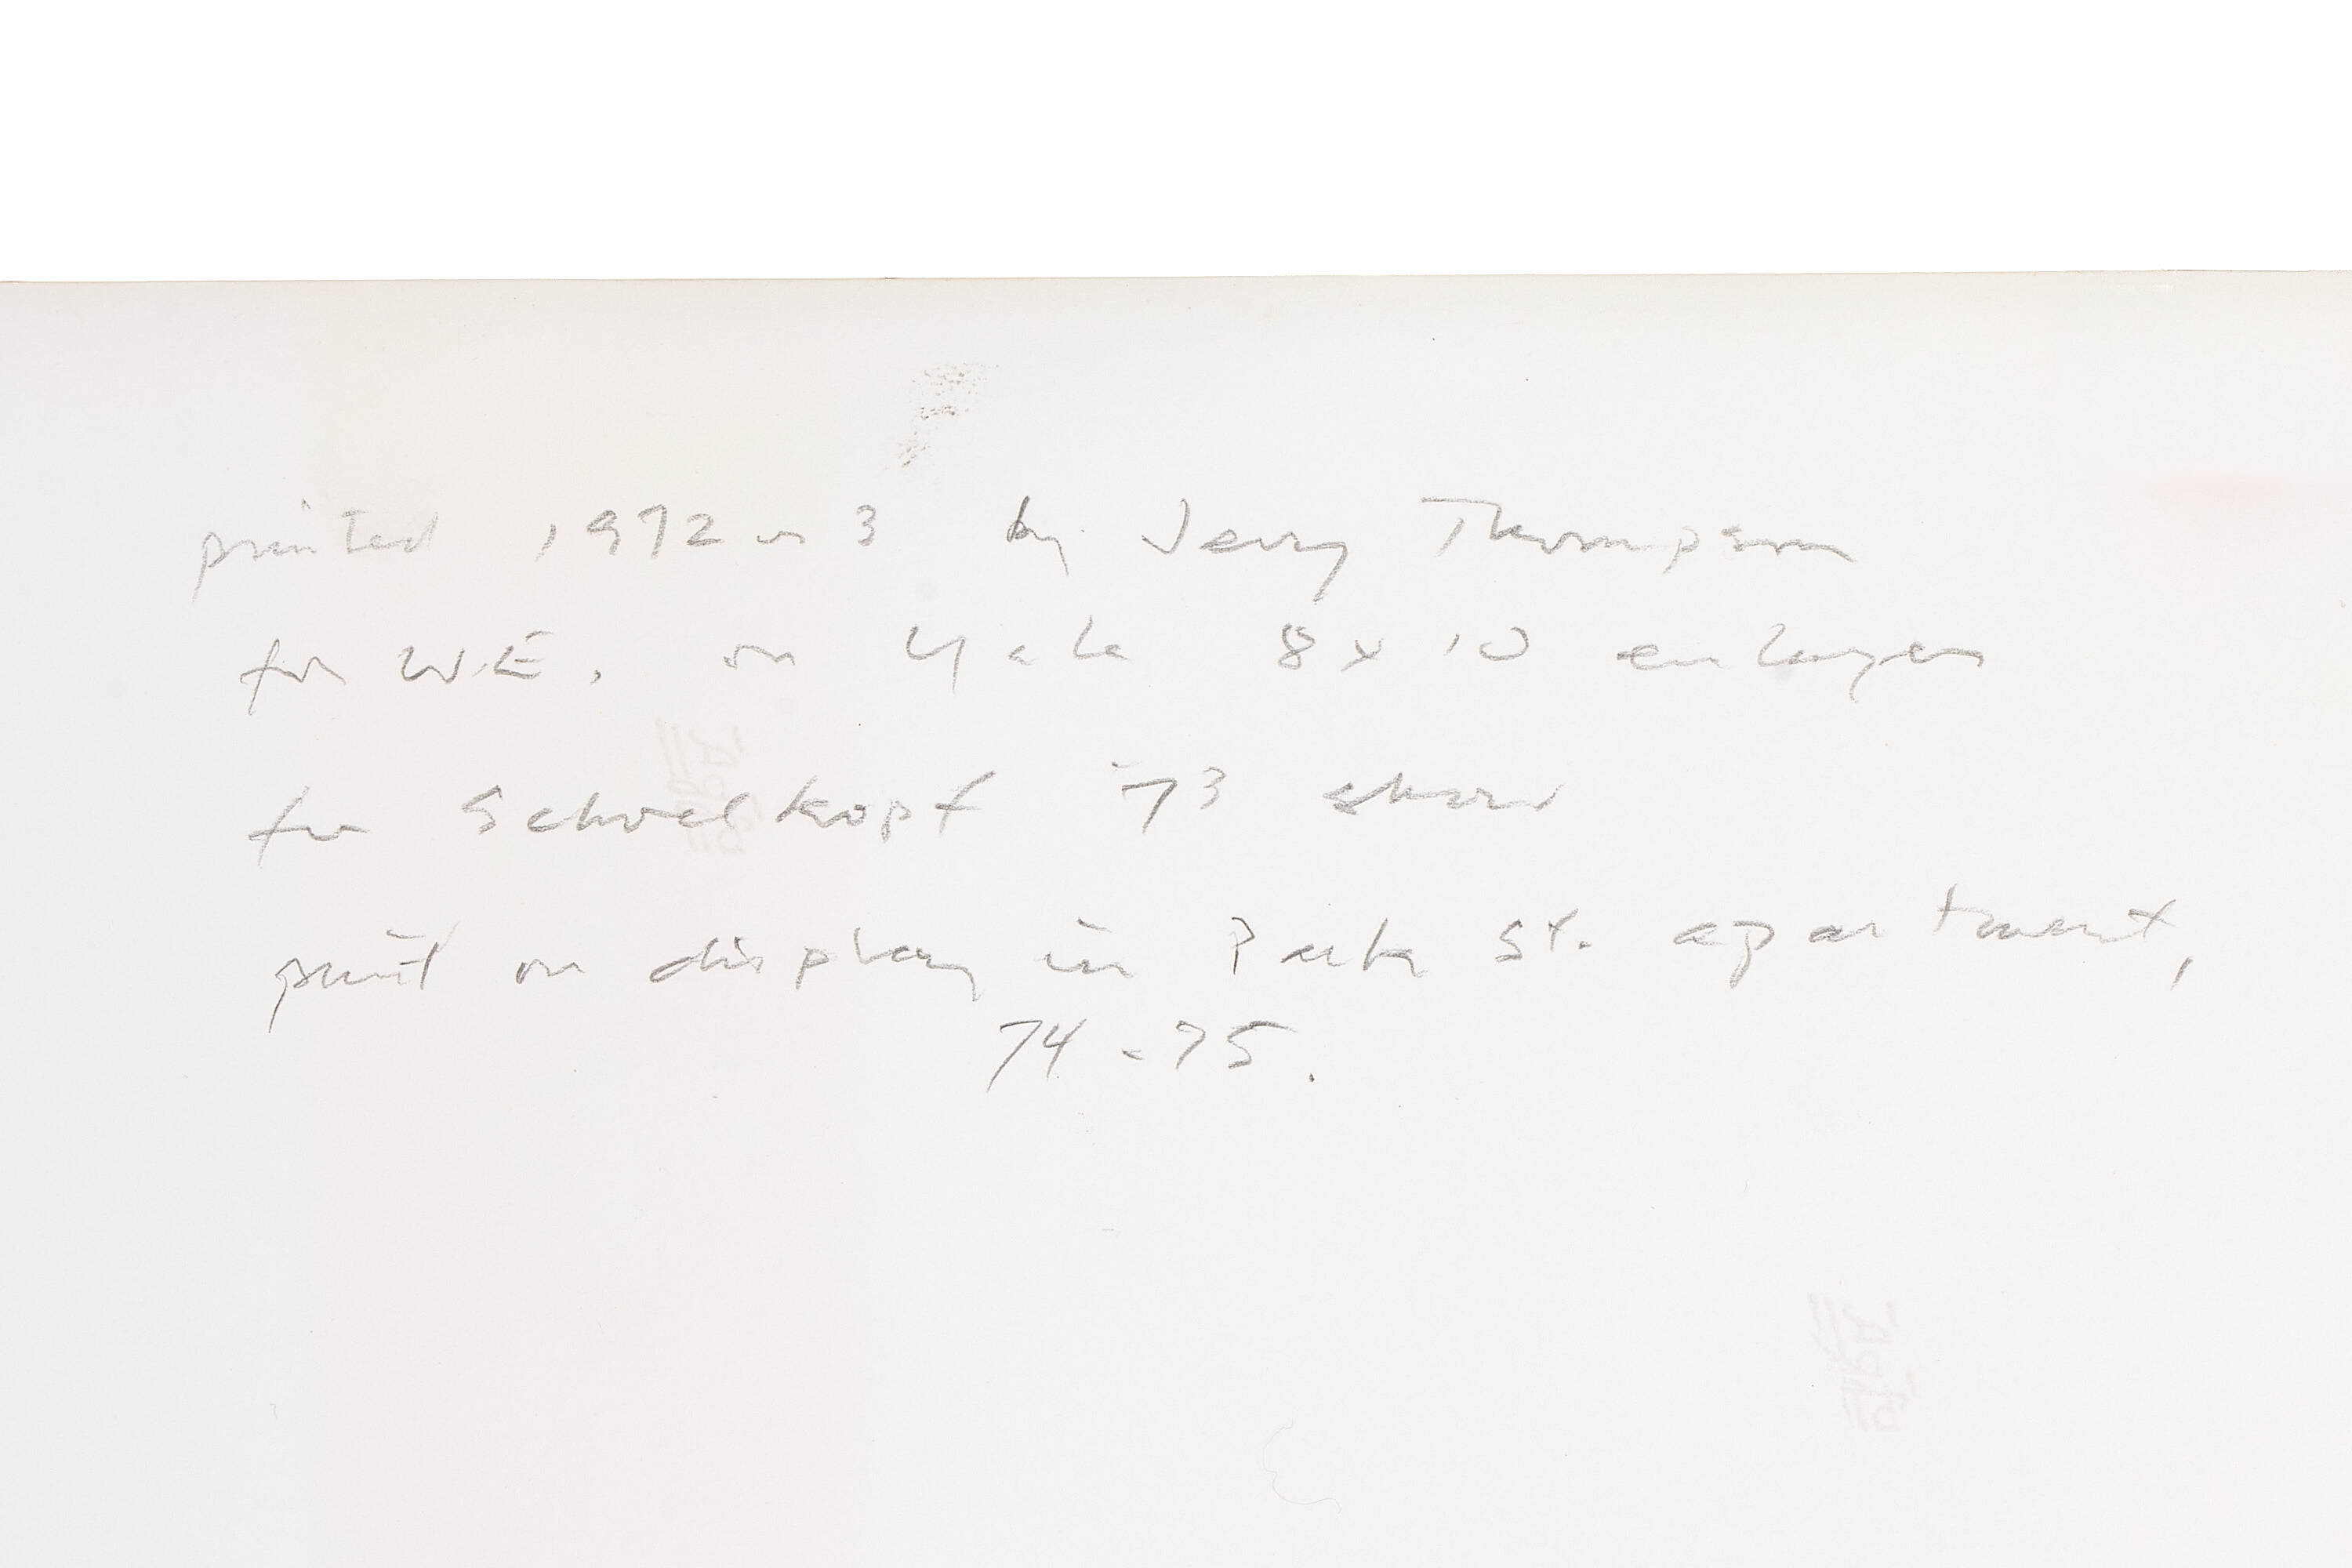 printed 1972 or 3 by Jerry Thompson
for W.E. on Yale 8x10 enlarger
for Schoelkopf '73 show
print on display in Park St. apartment,
74-75.
Agfa
Agfa